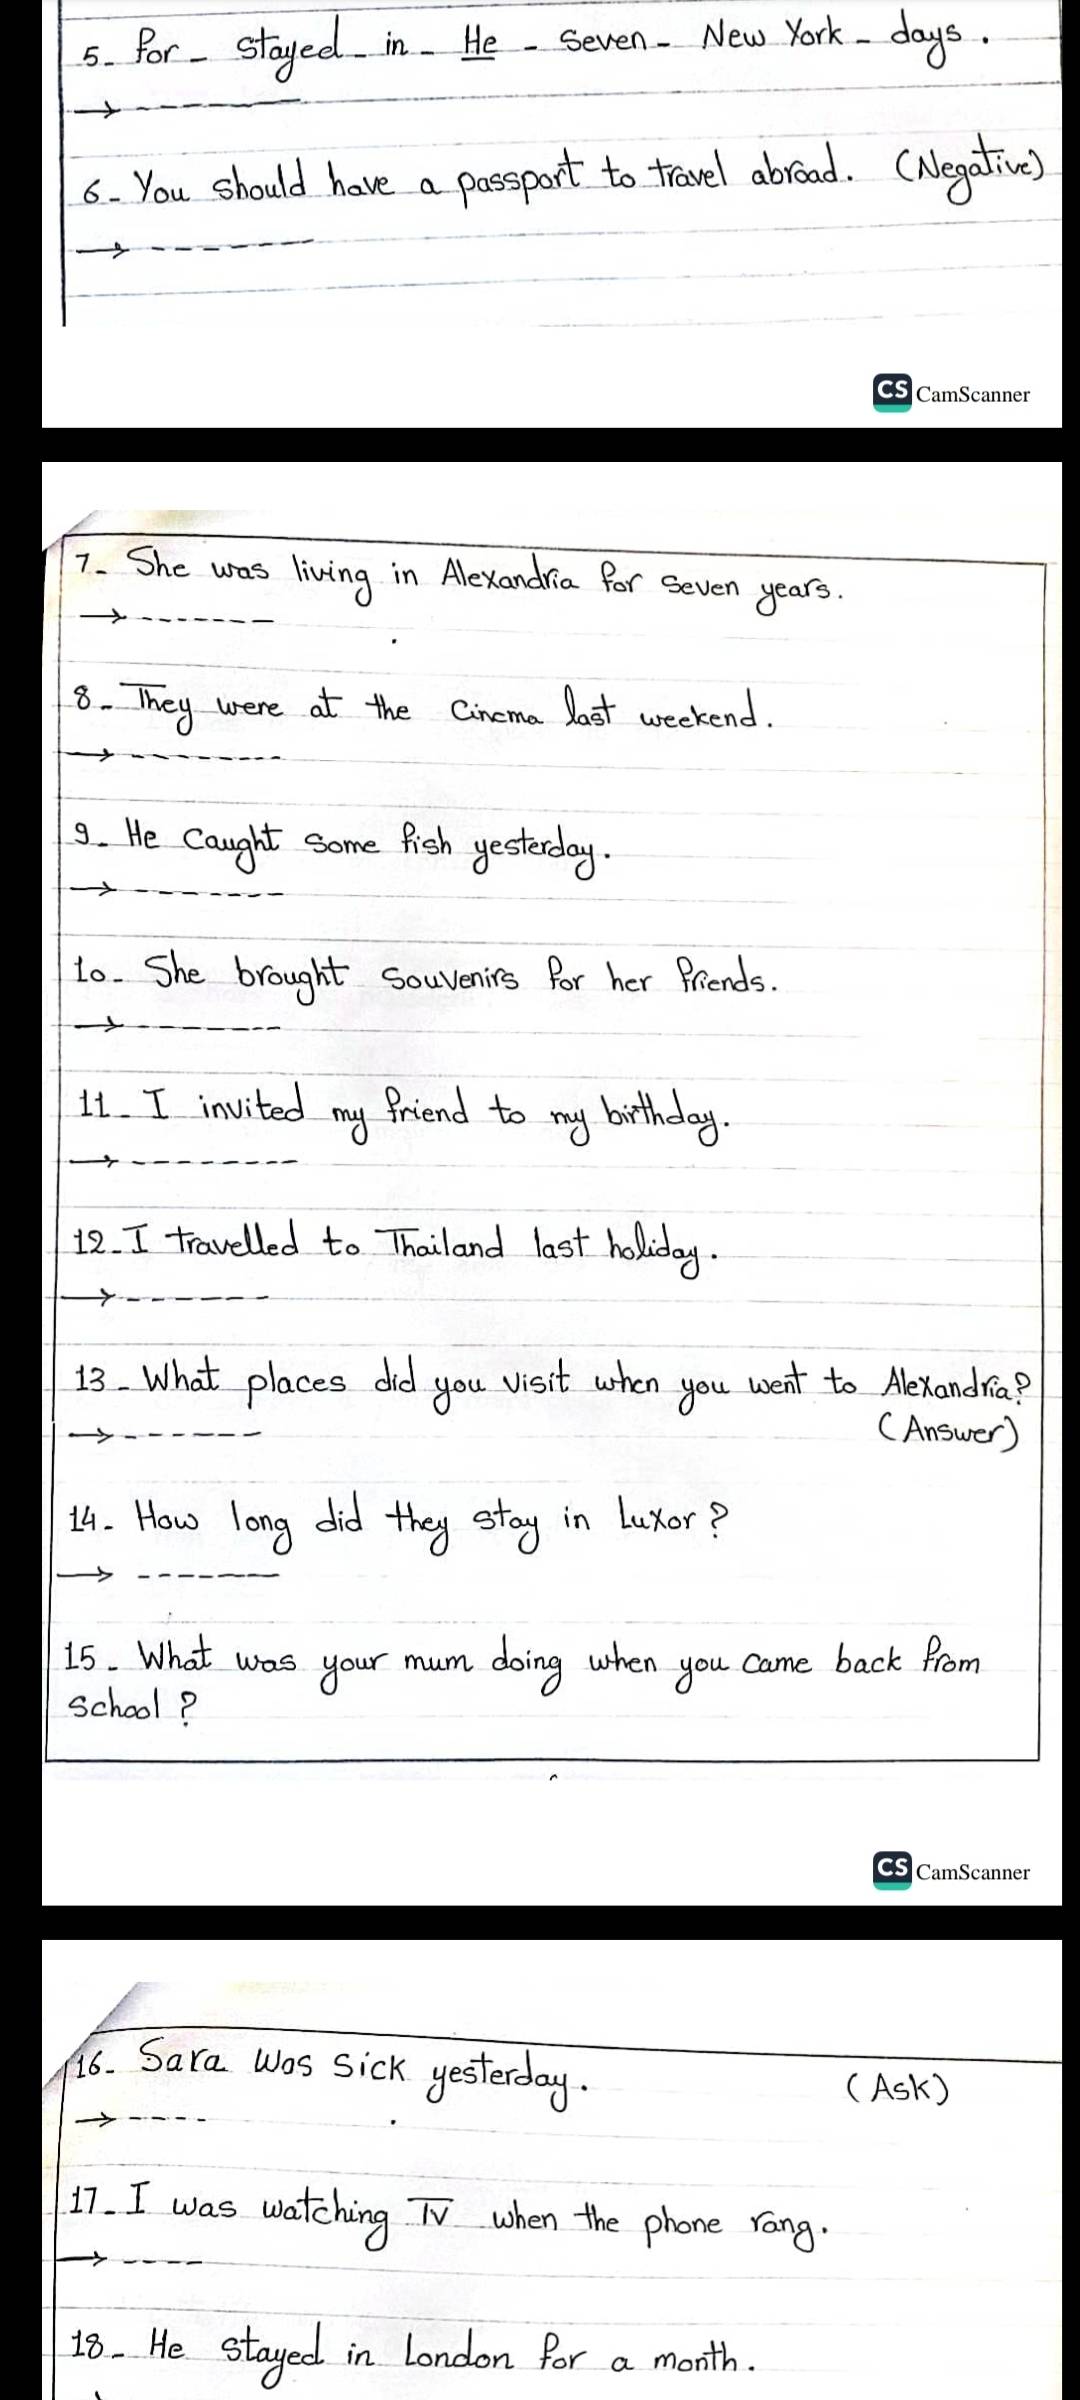 5- for - stayed - in - He - seven - New York - days.
6- You should have a passport to travel abroad. (Negative)
CS CamScanner
7- She was living in Alexandria for seven years.
8- They were at the cinema last weekend.
9- He caught some fish yesterday.
10- She brought souvenirs for her friends.
11- I invited my friend to my birthday.
12- I travelled to Thailand last holiday.
13- What places did you visit when you went to Alexandria?
(Answer)
14- How long did they stay in Luxor?
15- What was your mum doing when you came back from
school?
CS CamScanner
16- Sara was sick yesterday. (Ask)
17- I was watching TV when the phone rang.
18- He stayed in London for a month.